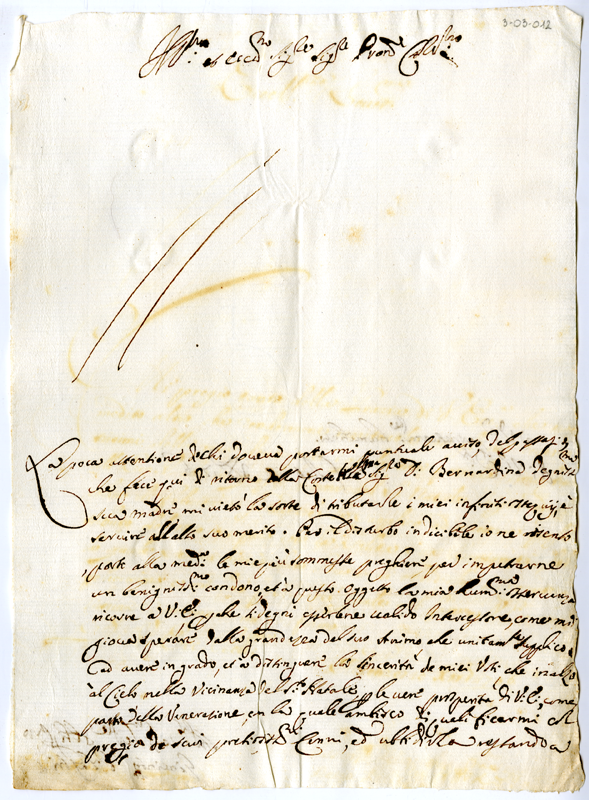 3-03-012
Ill.mo et Ecc.mo Sig.re Sig.re Pron.e Col.mo
La poca attentione di chi doveva portarmi puntuale aviso del passaggio
che fece qui di ritorno dalla Corte la Sig.ra D. Bernardina degniss.ma
sua madre mi vietò la sorte di tributarle i miei ossequij, e
servire all'alto suo merito. Per il disturbo indicibile io ne risento
porto alla med.a le mie più sommesse preghiere per impetrarne
un benigniss.mo condono, et a questo oggetto la mia hum.ma osservanza
ricorre a V.E. che si degni esserne valido Intercessore, come mi
giova sperare dalla grandezza del suo Animo che unitam.te supplico
ad avere in grado, et a distinguere la sincerità de miei Voti che inalzo
al Cielo nella Vicinanza del S. Natale le vere prosperità di V.E. come
parto della Veneratione, con la quale ambisco di qualificarmi col
pregio de suoi pretiosiss.mi Cenni, ed restando